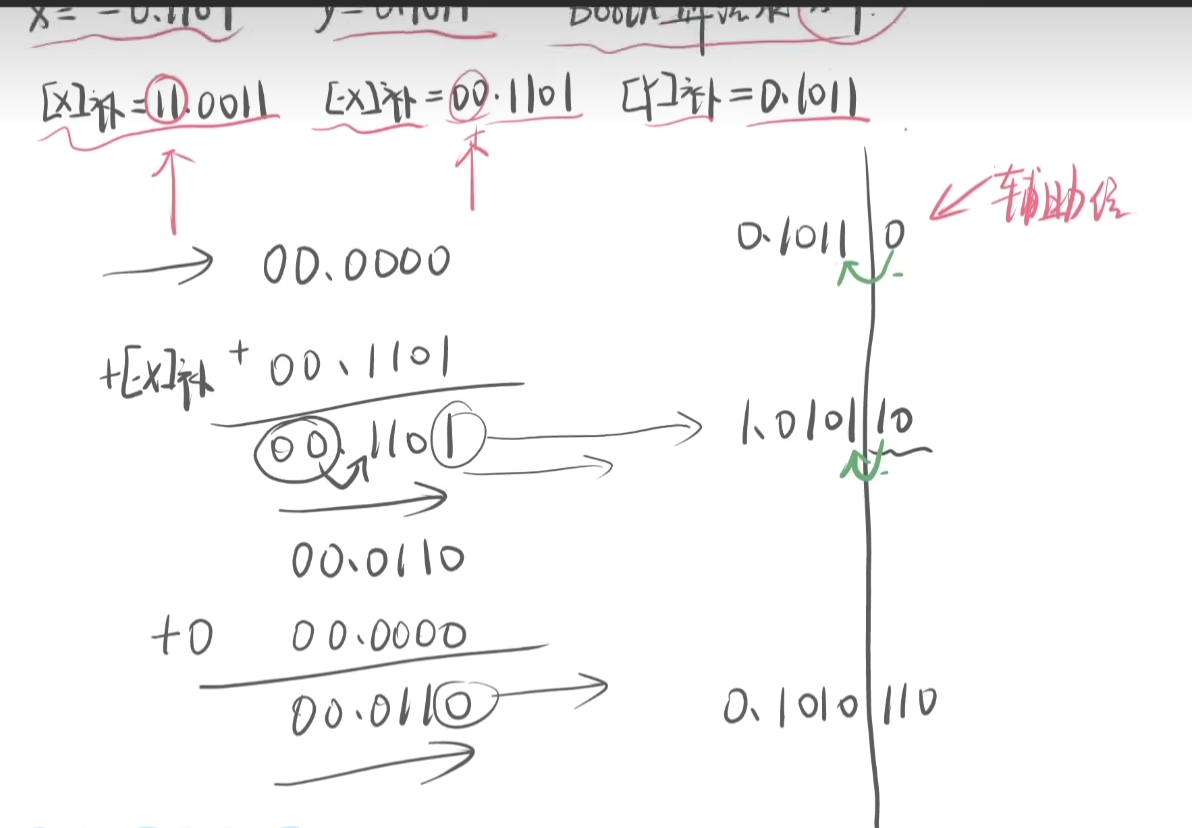 x= -0.1101 y= 0.1011 Booth
[x]补=11.0011 [-x]补=00.1101 [Y]补=0.1011
辅助位
00.0000 0.1011 0
+[-x]补 + 00.1101
00.1101 1.0101 10
00.0110
+0 00.0000
00.0110 0.1010 110